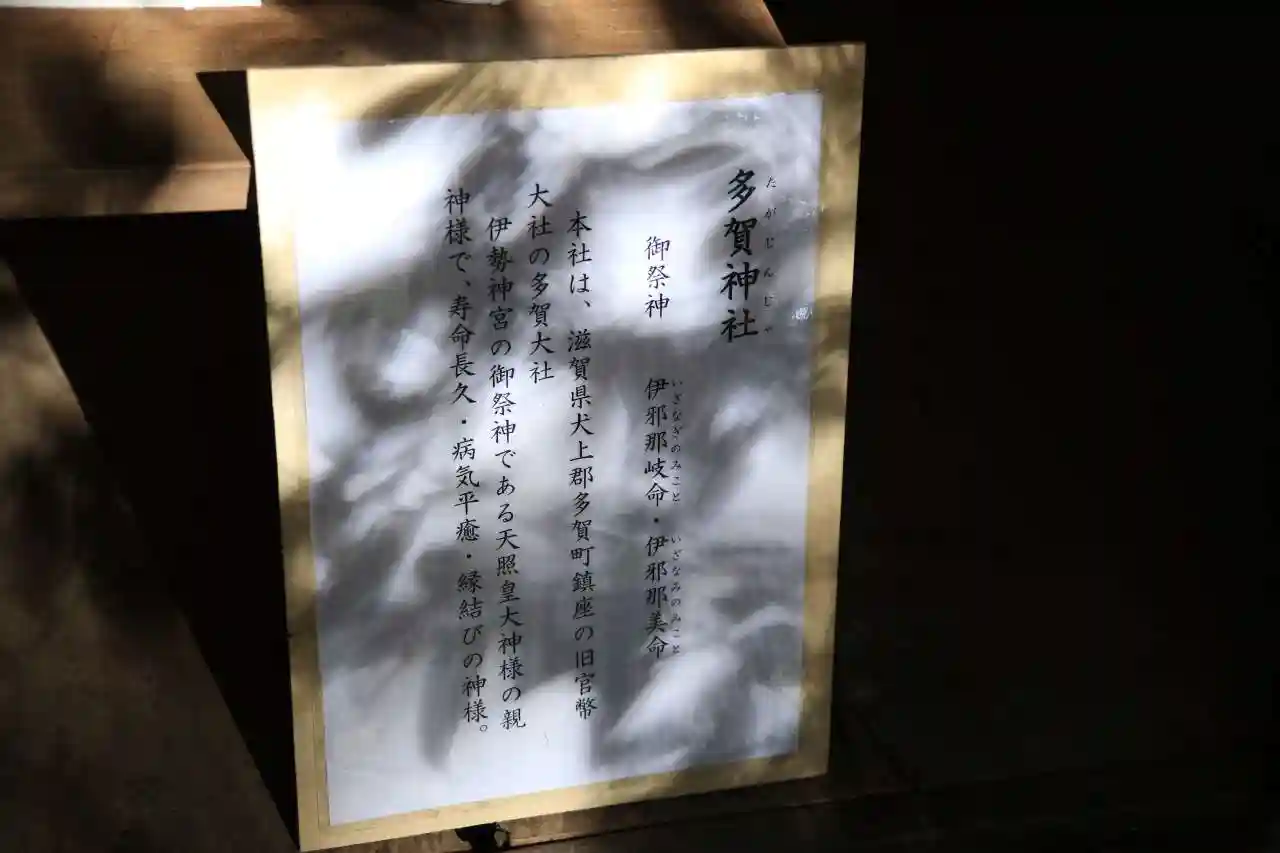 多賀神社
たがじんじゃ
御祭神 伊邪那岐命・伊邪那美命
いざなぎのみこと いざなみのみこと
本社は、滋賀県犬上郡多賀町鎮座の旧官幣
大社の多賀大社
伊勢神宮の御祭神である天照皇大神様の親
神様で、寿命長久・病気平癒・縁結びの神様。